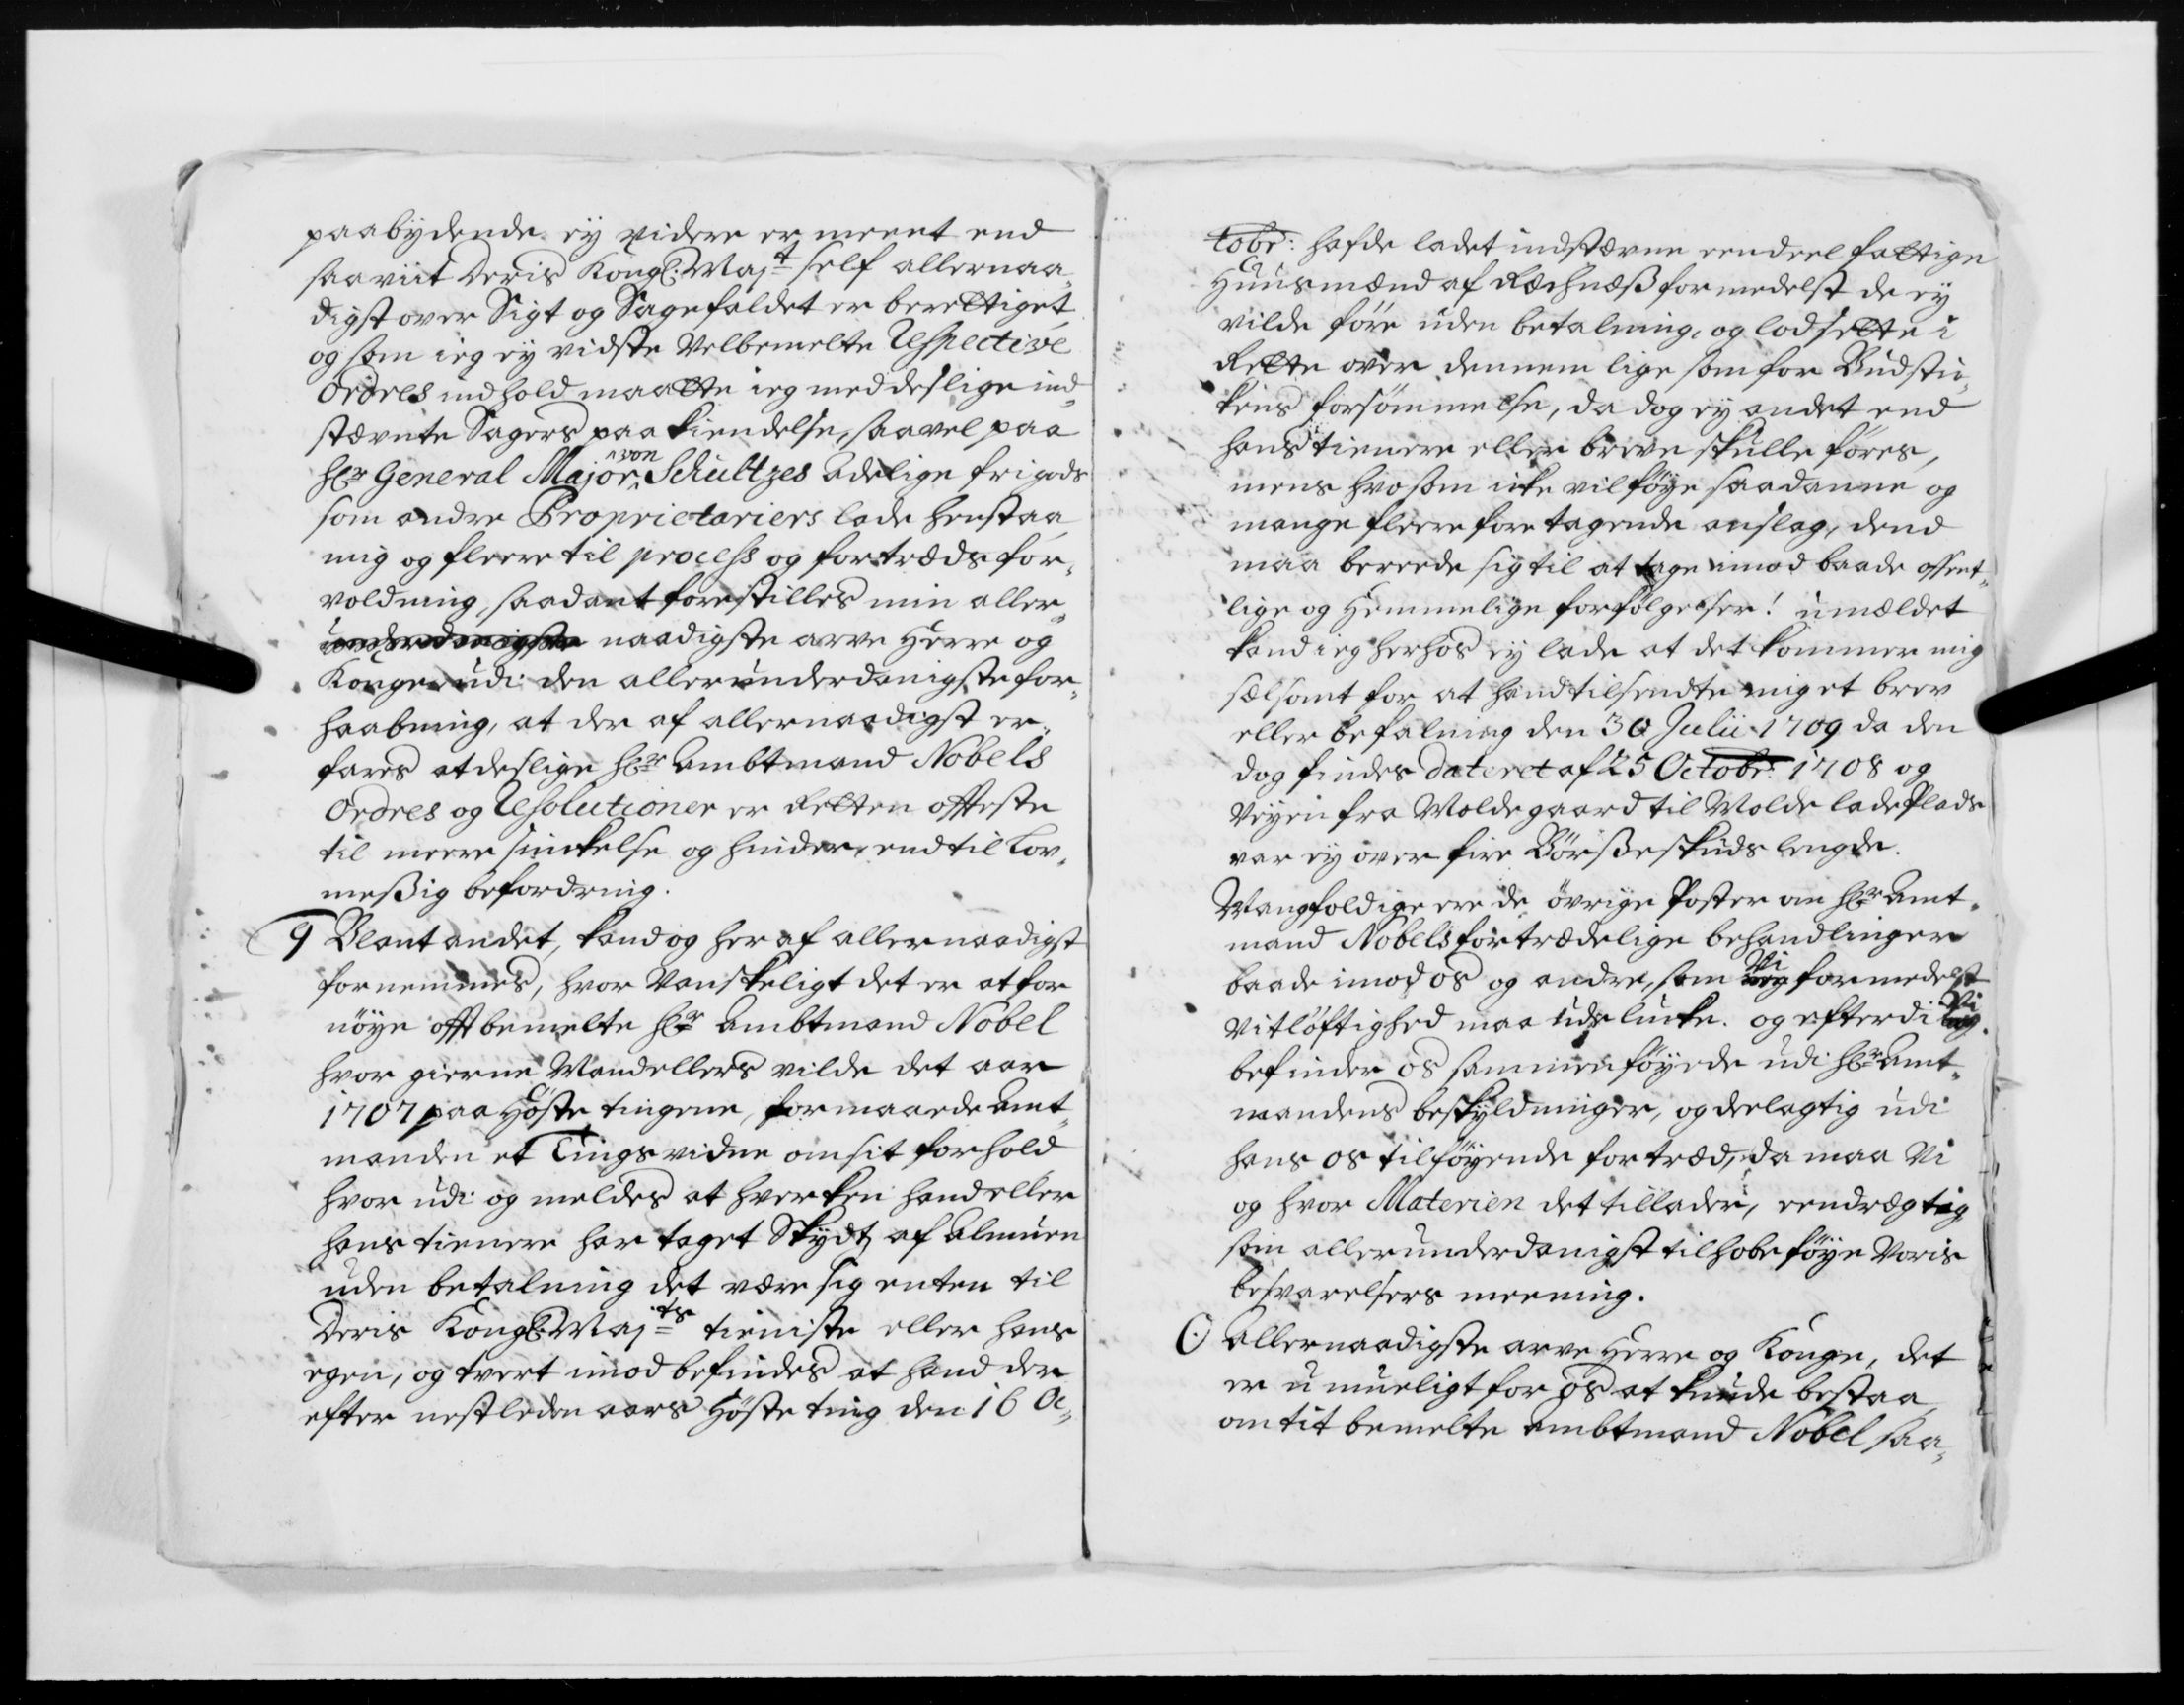 paabÿdende eÿ videre er meent end
saaviit Deris Kongl: Maj:t self allernaa,,
digst over Sigt og Sagefaldet er berettiget,
og som ieg eÿ vidste Velbemelte Respective
Ordres indhold maatte ieg med deslige ind,,
stævnte Sagers paa kiendelse, saavel paa
Hr: General Major von Schultzes Adelige frigods
som andre Proprietariers lade henstaa,
mig og fleere til process og fortræds for,,
voldning, saadant forestilles min aller,,
underdanigste naadigste arve Herre og
Konge udi den allerunderdanigste for,,
haabning, at der af allernaadigst er,,
fares at deslige Hr: Ambtmand Nobels
Ordres og Resolutioner er Retten offteste
til meere sinckelse og hinder, end til Lov,,
meßig befordring.
9 Blant andet, kand og her af allernaadigst
fornemmes, hvor Vanskeligt det er at for
nöÿe offtbemelte Hr: Ambtmand Nobel
hvor gierne Mandellers vilde det aar
1707 paa Höste tingene, formaaede Amt,,
manden et Tingsvidne om sit forhold
hvor udi og meldes at hverken hand eller
hans tienere har taget Skÿdt af Almuen
uden betalning det være sig enten til
Deris Kongl: Maj:ts tieniste eller hans
egen, og tvert imod befindes at hand der
efter nestleden aars Höste ting den 16 Oc,,
tobr: hafde ladet indstævne eendeel fattige
Huusmænd af Rechnæß formedelst de eÿ
vilde före uden betalning, og lod sette i
Rette over dennem lige som for Budstic,,
kens forsömmelse, da dog eÿ andet end
hans tienere eller breve skulle föres,
mens hvo som icke vil föÿe saadanne og
mange fleere foretagende anslag, dend
maa bereede sig til at tage imod baade offent,,
lige og Hemmelige forfölgelser! umældet
kand ieg herhos eÿ lade at det kommer mig
sælsomt for at hand tilsendte mig et brev
eller befalning den 30 Julii 1709 da den
dog findes dateret af 25 Octobr: 1708 og
Veÿen fra Molde gaard til Molde ladePlads
var eÿ over fire Börßeskuds lengde.
Mangfoldige ere de övrige Poster om Hr: Amt,,
mand Nobels fortrædelige behandlinger
baade imod os og andre, som Vi formedelst
Vitlöftighed maa udelucke. og efterdi Vi
befinder os sammenföÿede udi Hr: Amt,,
mandens beskÿldninger, og deelagtig udi
hans os tilföÿende fortræd, da maa Vi
og hvor Materien det tillader, eendrægtig
som allerunderdanigst tilhobe föÿe Voris
besvarelsers meening.
Allernaadigste arve Herre og Konge, det
er umueligt for os at kunde bestaa,
om tit bemelte Ambtmand Nobel saa,,